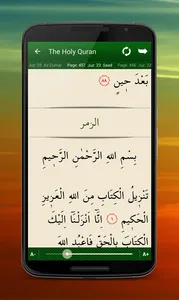 The Holy Quran
Juz 23 Az Zumar Page 457 Juz 23 Saad Page 456 Juz 22
بَعْدَ حِينٍ ٨٨
الزمر
بِسْمِ اللَّهِ الرَّحْمَٰنِ الرَّحِيمِ
تَنْزِيلُ الْكِتَابِ مِنَ اللَّهِ الْعَزِيزِ
الْحَكِيمِ ١ إِنَّا أَنْزَلْنَا إِلَيْكَ
الْكِتَابَ بِالْحَقِّ فَاعْبُدِ اللَّهَ
A- A+